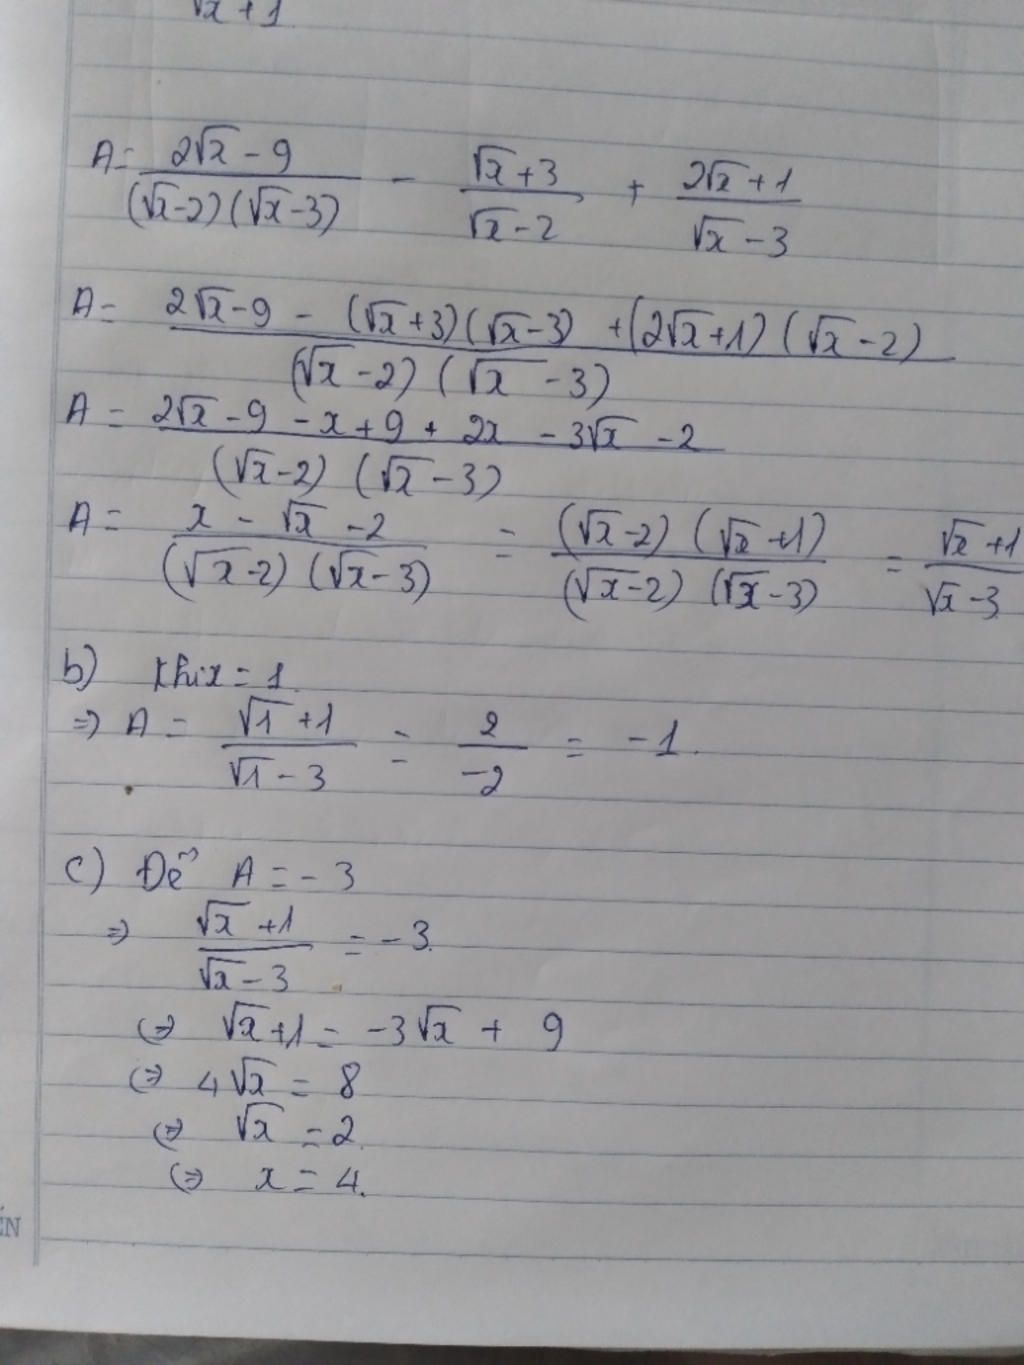 √x + 1
A = (2√x - 9)/((√x-2)(√x-3)) - (√x+3)/(√x-2) + (2√x+1)/(√x-3)
A = (2√x-9 - (√x+3)(√x-3) + (2√x+1)(√x-2))/((√x-2)(√x-3))
A = (2√x-9 - x+9 + 2x - 3√x - 2)/((√x-2)(√x-3))
A = (x - √x - 2)/((√x-2)(√x-3)) = ((√x-2)(√x+1))/((√x-2)(√x-3)) = (√x+1)/(√x-3)
b) Khi x = 1
=> A = (√1+1)/(√1-3) = 2/-2 = -1.
c) Để A = -3
=> (√x+1)/(√x-3) = -3.
<=> √x+1 = -3√x + 9
<=> 4√x = 8
<=> √x = 2.
<=> x = 4.
ẾN